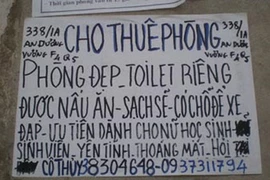 338/1A
AN DƯƠNG
VƯƠNG F4 Q5
CHO THUÊ PHÒNG
338/1A
AN DƯƠNG
VƯƠNG F4 Q5
PHÒNG ĐẸP_TOILET RIÊNG
ĐƯỢC NẤU ĂN-SẠCH SẼ-CÓ CHỖ ĐỂ XE
ĐẠP-ƯU TIÊN DÀNH CHO NỮ HỌC SINH
SINH VIÊN-YÊN TĨNH-THOÁNG MÁT-
CÔ THỦY 38304648-0937311794